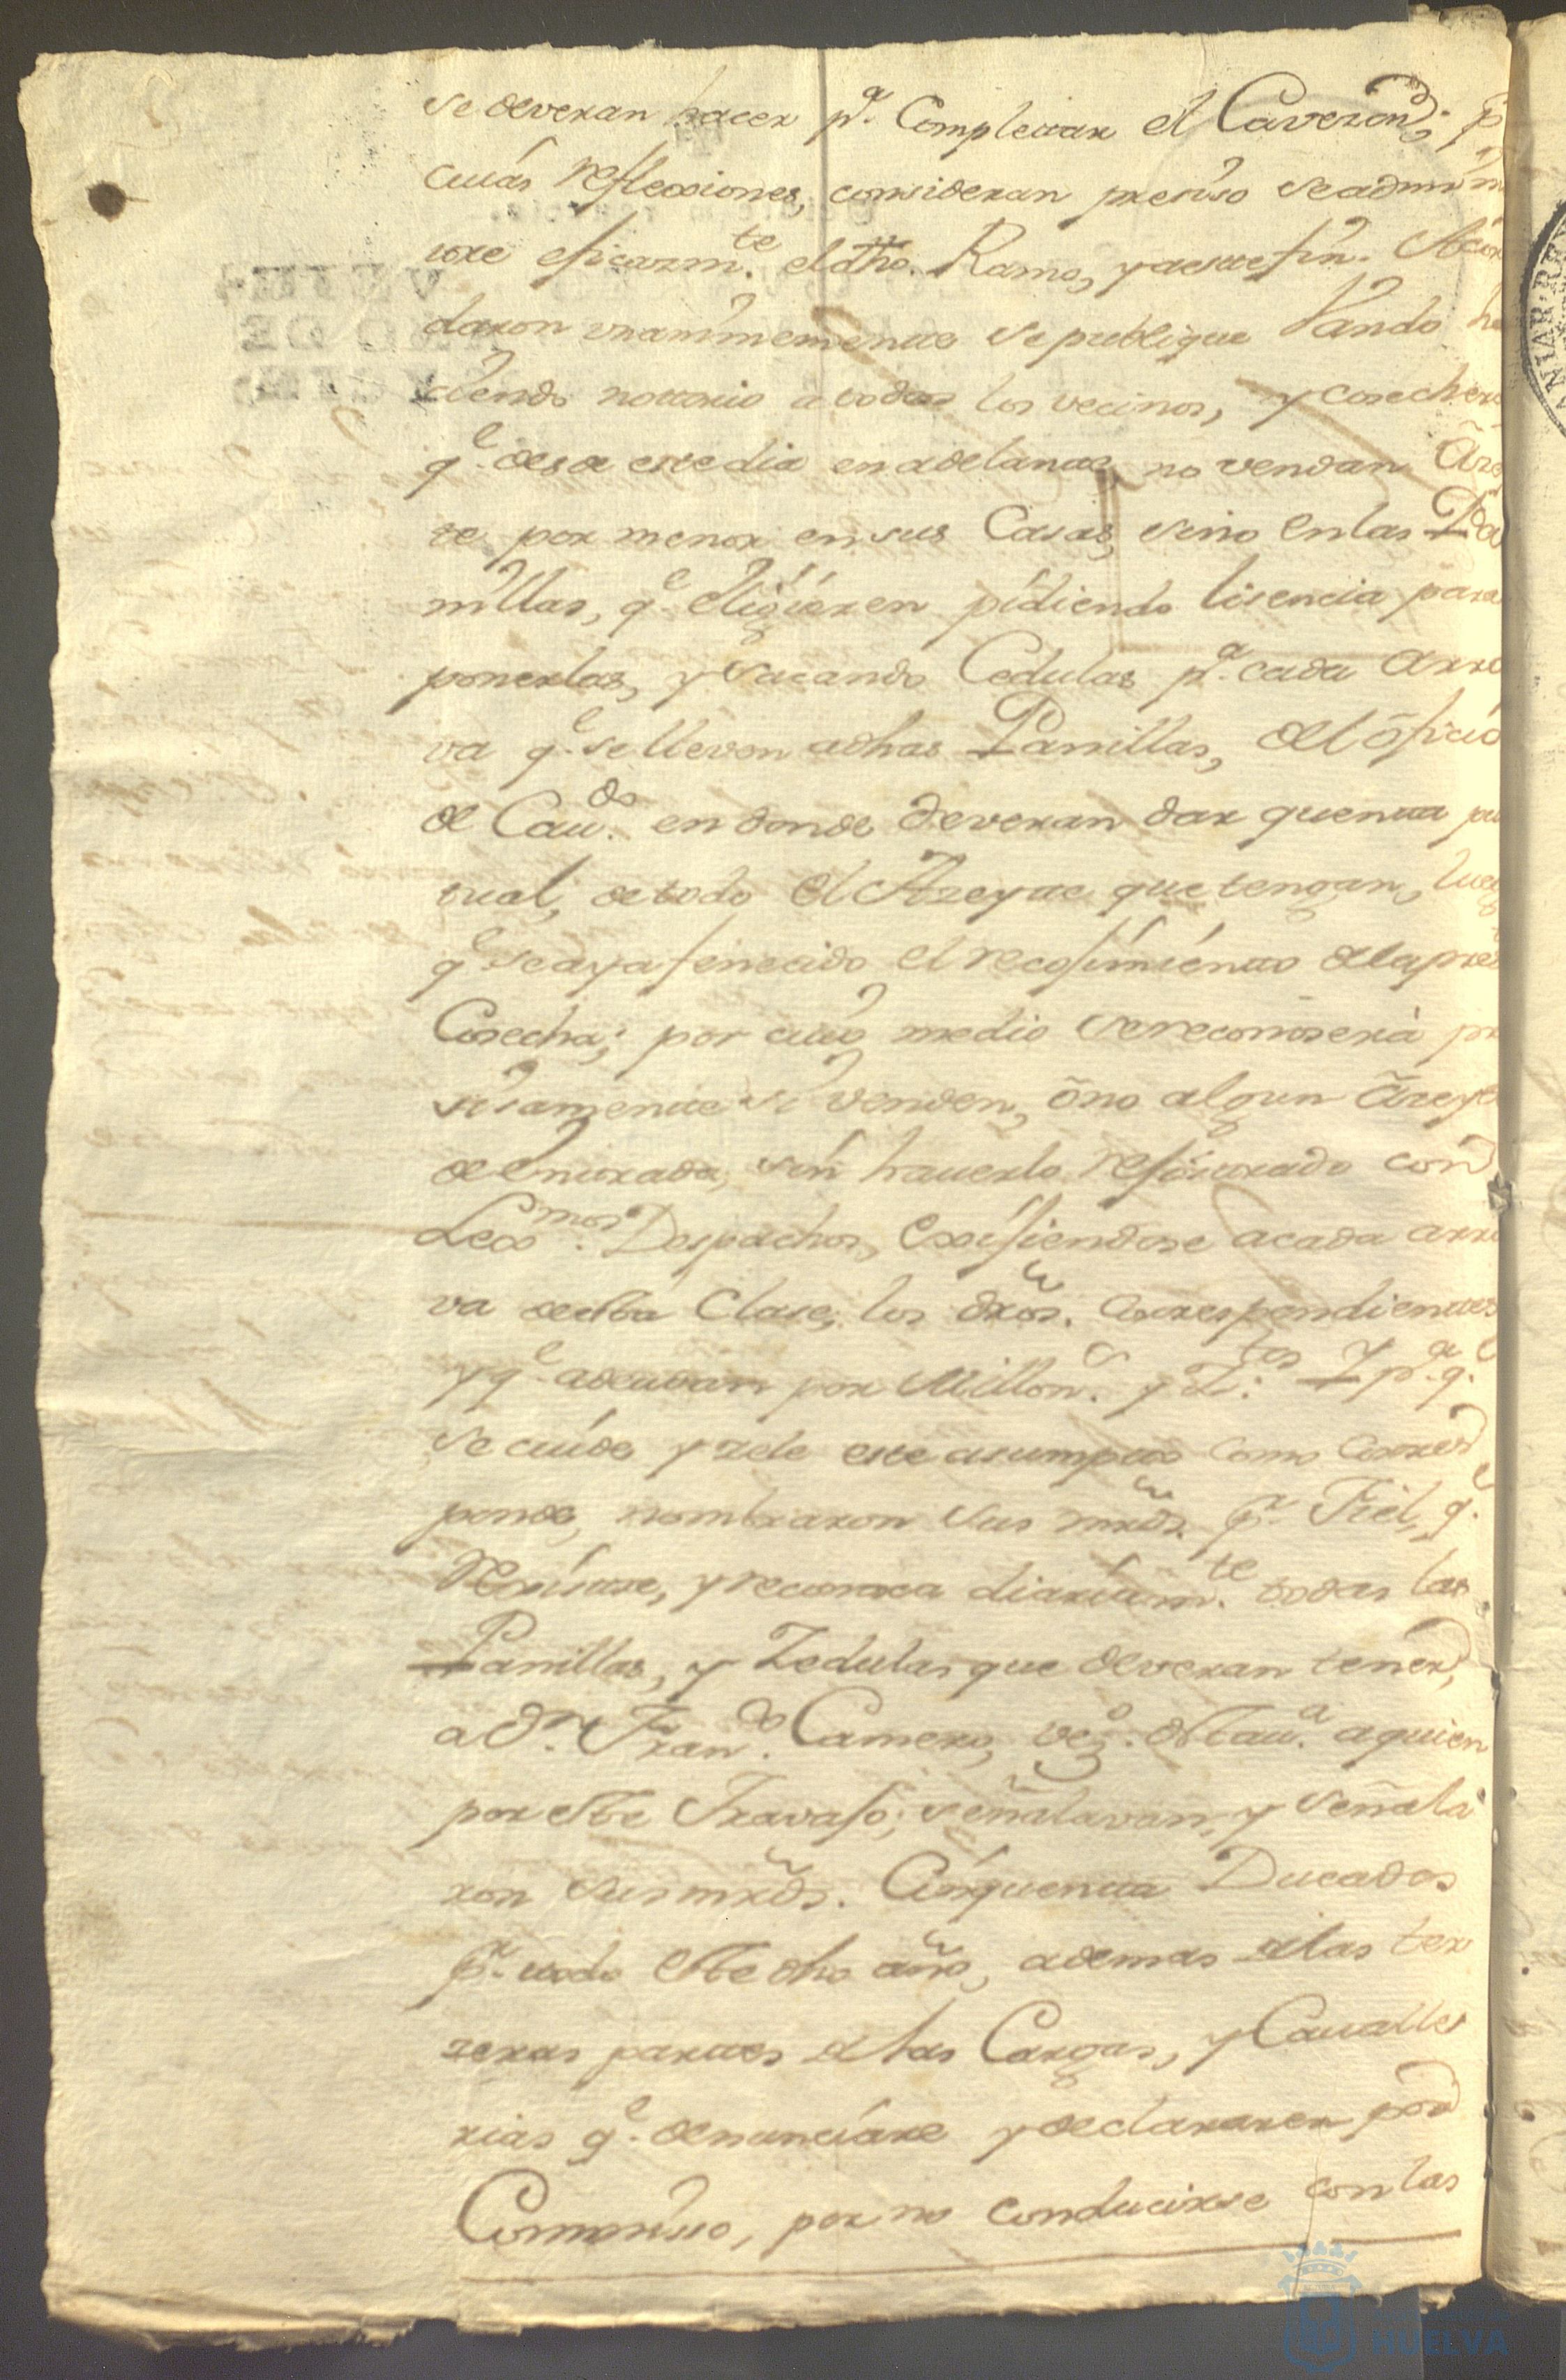 se deveran hacer p.ª Completar el Caverzon; p.r
cuias reflecxiones, consideran presiso se adminis
tre eficazm.te el dho. Ramo, y a este fin. Acor
daron vnanimemente se publique Vando ha
ciendo notorio a todos los vecinos, y cosechero
q.e desde este dia en adelante, no vendan Azei
te por menor en sus Casas, sino en las Pa
nillas, q.e eligieren pidiendo lisencia para
ponerlas, y sacando Cedulas p.ª cada arro
va q.e se lleven a dhas Panillas, del oficio
de Cau.do en donde deveran dar quenta pun
tual, de todo el Azeyte que tengan, luego
q.e se aya fenecido el recojimiento de la pres.te
Cosecha; por cuio medio se reconosera pre
sisamente si venden, o no algun Azeyte
de entrada, sin hauerlo rejistrado con
Lex.mos Despachos, exsijiendose a cada arro
va de esta Clase, los dros. correspondientes
y q.e adeudan por Millon.s y Z.tos Y p.ª q.e
se cuide y zele este asumpto como corres
ponde, nombraron sus mrds. p.r Fiel, q.e
rexistre, y reconosca diariam.te todas las
Panillas, y Zedulas que deveran tener,
a D.n Fran.co Camero, vez.o de esta u.ª a quien
por este Travajo, señalavan, y señala
ron sus mrds. Cinquenta Ducados
p.r todo este dho año, ademas de las ter
zeras partes de las Cargas, y Cavalle
rias q.e denunciare y declararen por
Commisso, por no conducirse con las
HUELVA